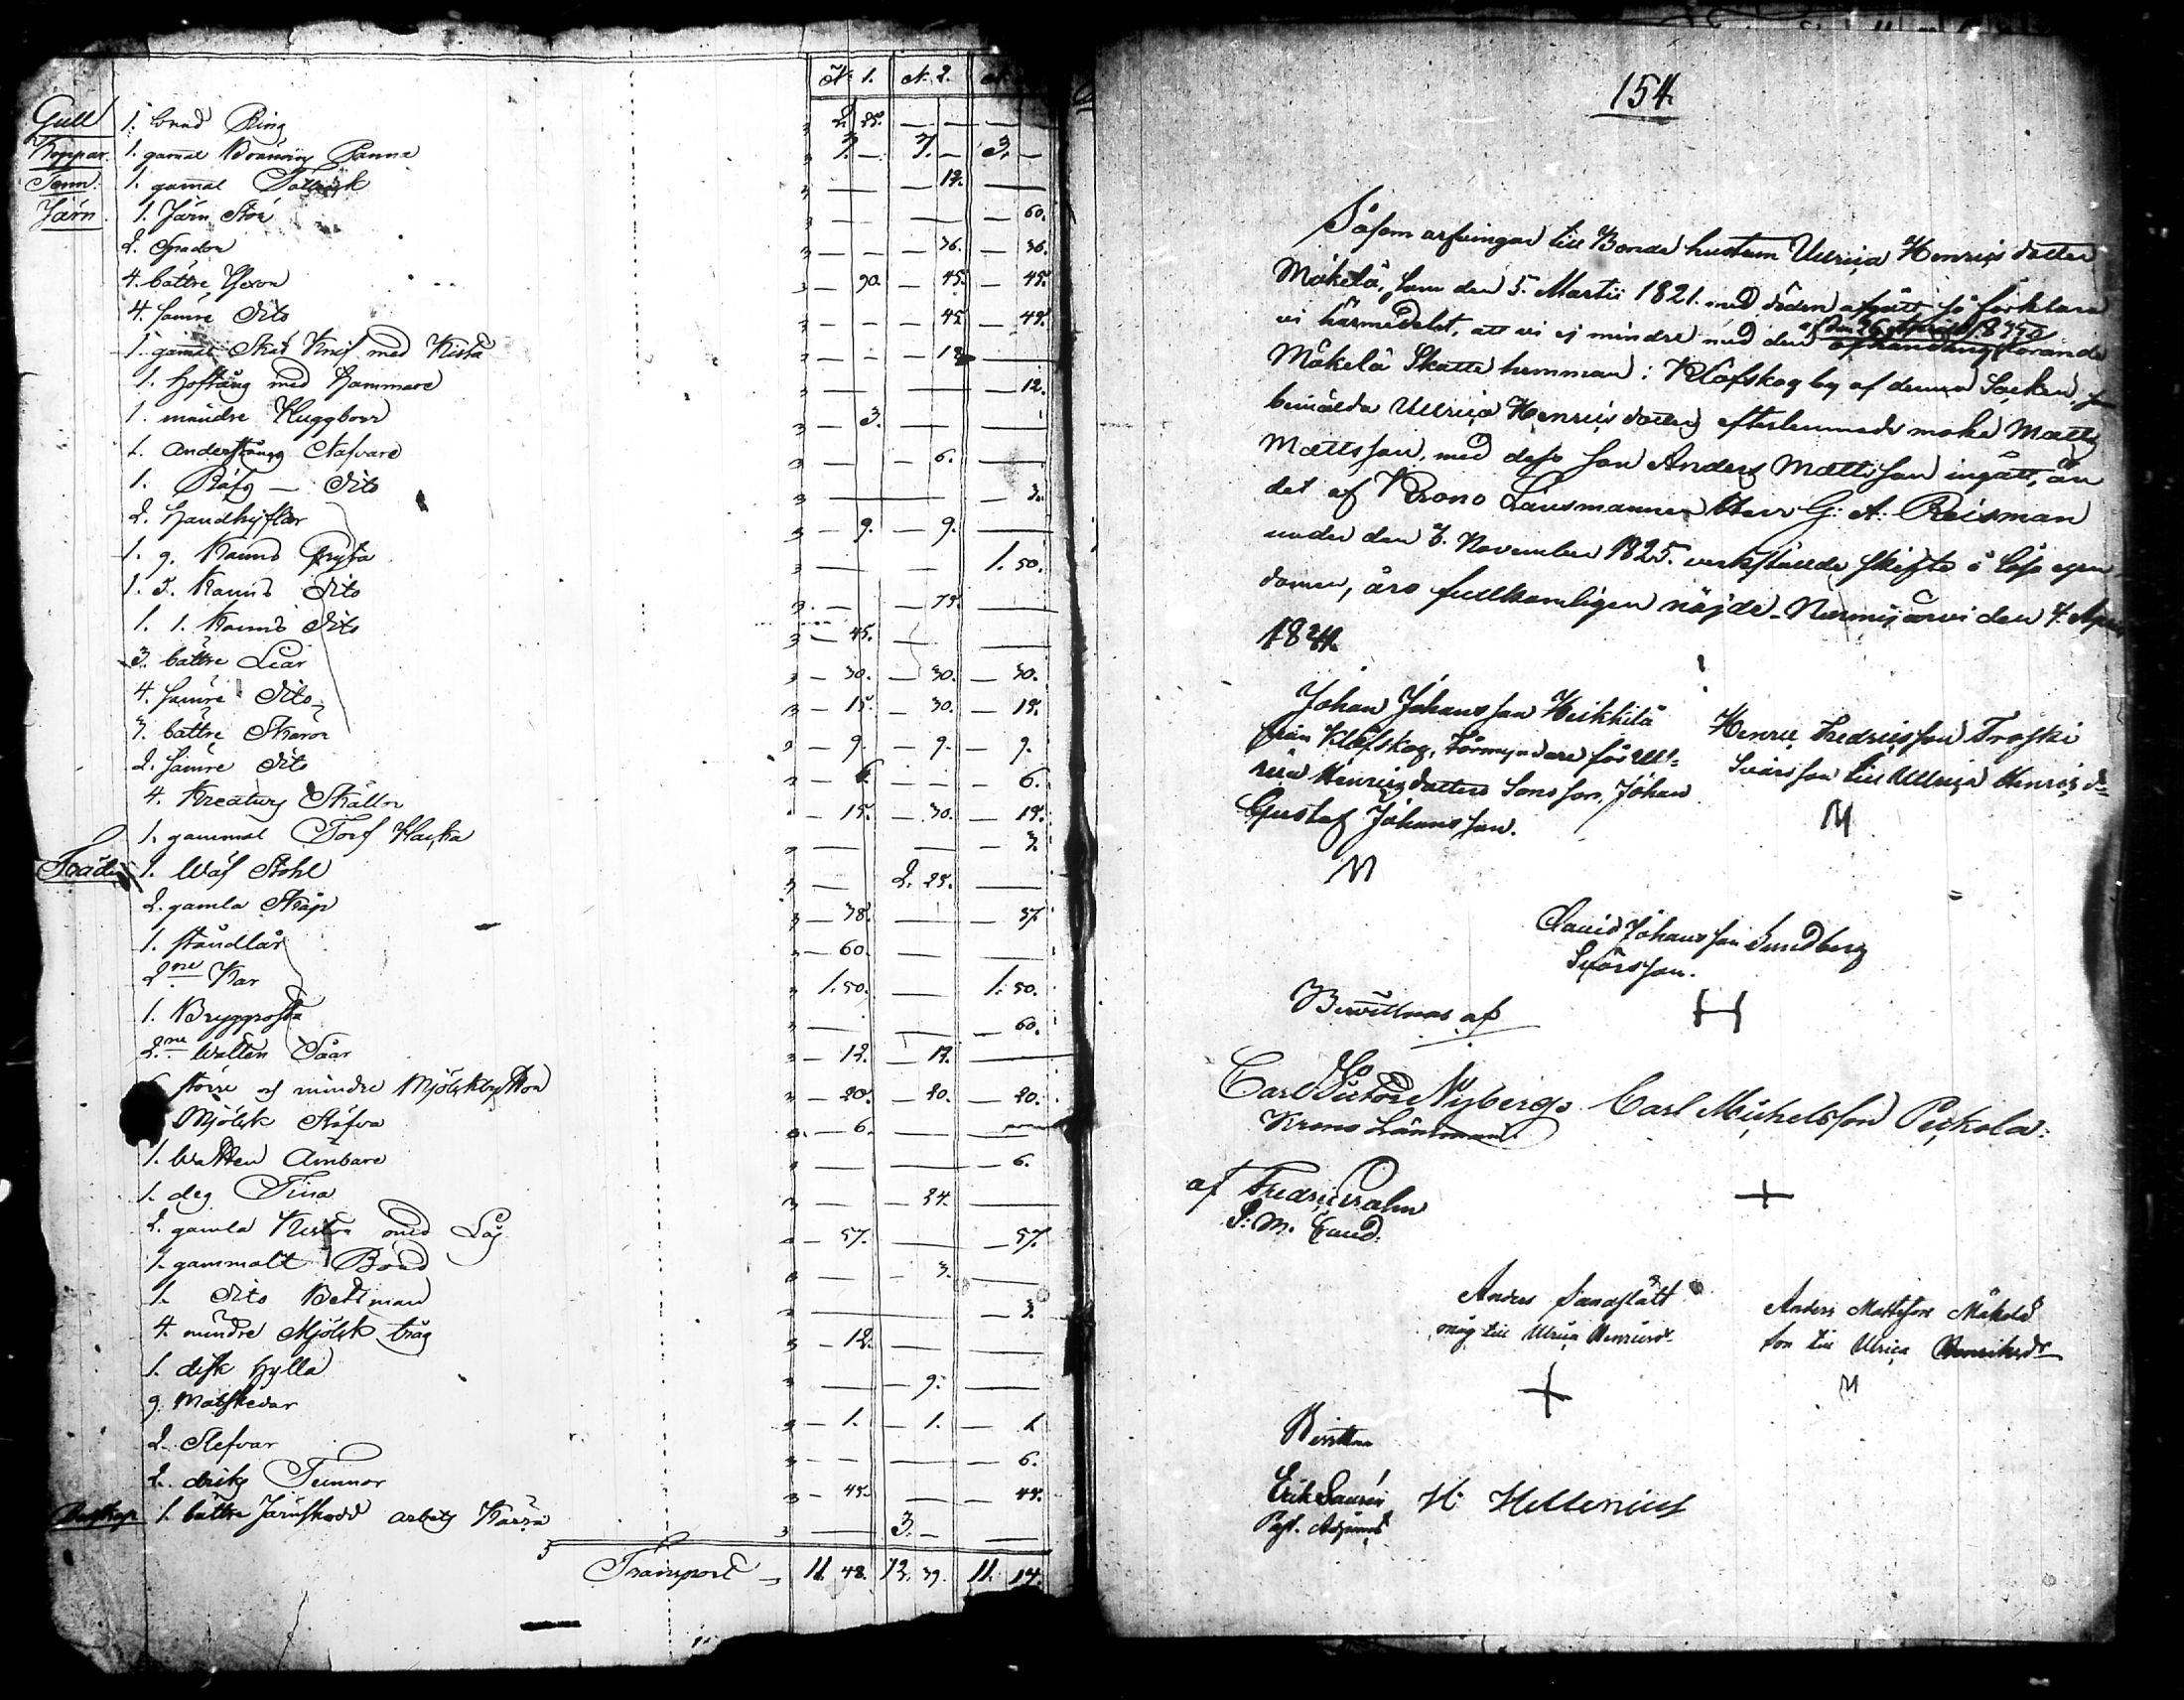 N: 1. N: 2.
Gull 1. bred Ring 2 25. — — — —
Koppar. 1. gamal Bränvins Panna 7. — 7. — 3. —
Tenn: 1. gamal — — 12. —
Järn. 1. Järn Stör — — — 60.
2. Spador — — 36. — 36.
4. bättre Yxor 90. — 45. — 45.
4. sämre Dito — — — 45. — 45.
1. gamal Skaf Knif med Kista — — — 12
1. Hoftång med Hammare — — — 12.
1. mindre Huggborr 3. — —
1. Anderstångs Nafvare — — 6. —
1. Räfs — Dito — — 3.
2. Handhyflar — 9. — 9. —
1. 9. Kanns Gryta — — 1. 50.
1. 3. Kanns Dito — — 75. —
1. 1. Kanns Dito — 45. — —
3. bättre Liar — 30. — 30. — 30.
4. sämre Dito — 15. — 30. — 15.
3. bättre Skäror — 9. — 9. — 9.
2. sämre Dito — 6. — — 6.
4. Kreaturs Skällor — 15. — 30. — 15.
1. gammal Torf Hacka — — — 3.
Träde 1. Wäf Stohl — 2. 25. —
2. gamla Skåp — 38. — — 37.
1. Ståndlår — 60. — —
2ne Kar 1. 50. — 1. 50.
1. Bryggrosta — — — 60.
2ne Watten Såar — 12. — 12. —
större och mindre Mjölkbyttor — 20. — 20. — 20.
Mjölk Stäfva — 6. —
1. Watten Ämbare — — — 6.
1. deg Tina — — 24. —
2. gamla Kistor med Lås — 57. — — 57.
1. gammalt Bord — — 3. —
1. Dito — — 3.
4. mindre Mjölk tråg — 12. — —
1. disk Hylla — — 9. —
9. Matskedar — 1. — 1. — 1.
2. Slefvar — — — 6.
2. driks Tunnor — 45. — — 45.
Redskap 1. bättre Järnskodd arbets Kärra — 3. — —
Transport — 11. 48. 13. 39. 11. 14.
154.
Såsom arfvingar till Bonde hustrun Ullrica Henrics dotter
Mäkelä, som den 5. Martii 1821. med döden afgått, så förklara
vi härmedelst, att vi ej mindre med den afhandling rörande
Mäkelä Skatte hemman i Klåfskog by af denna Socken, som
bemälda Ullrica Henrics dotters efterlemnade make Matts
Mattsson, med dess son Anders Mattsson ingått, än
det af Krono Länsmannen Herr G: A: Reisman
under den 3. November 1825. verkställde skifte i lösa egen-
domen, äro fullkomligen nöjde. Nurmijärvi den 7. April
1841.
Johan Johansson Heikkilä
från Klåfskog, Förmyndare för Ull-
rica Henrics dotters Sonson, Johan
Gustaf Johansson.
Henric Fredricsson Troski
Svärson till Ullrica Henrics dr
David Johansson Sundberg
Svärson.
Bevittnas af
Carl Victor Nyberg. Carl Michelsson Pickola:
Krono Länsman.
af Fredric
Anders Sandslätt
måg till Ulrica Henricsdr.
Anders Mattsson Mäkelä
son till Ulrica Henriksdr
Bevittna
Erik Laurén H. Hellenius
Past. Adjunct